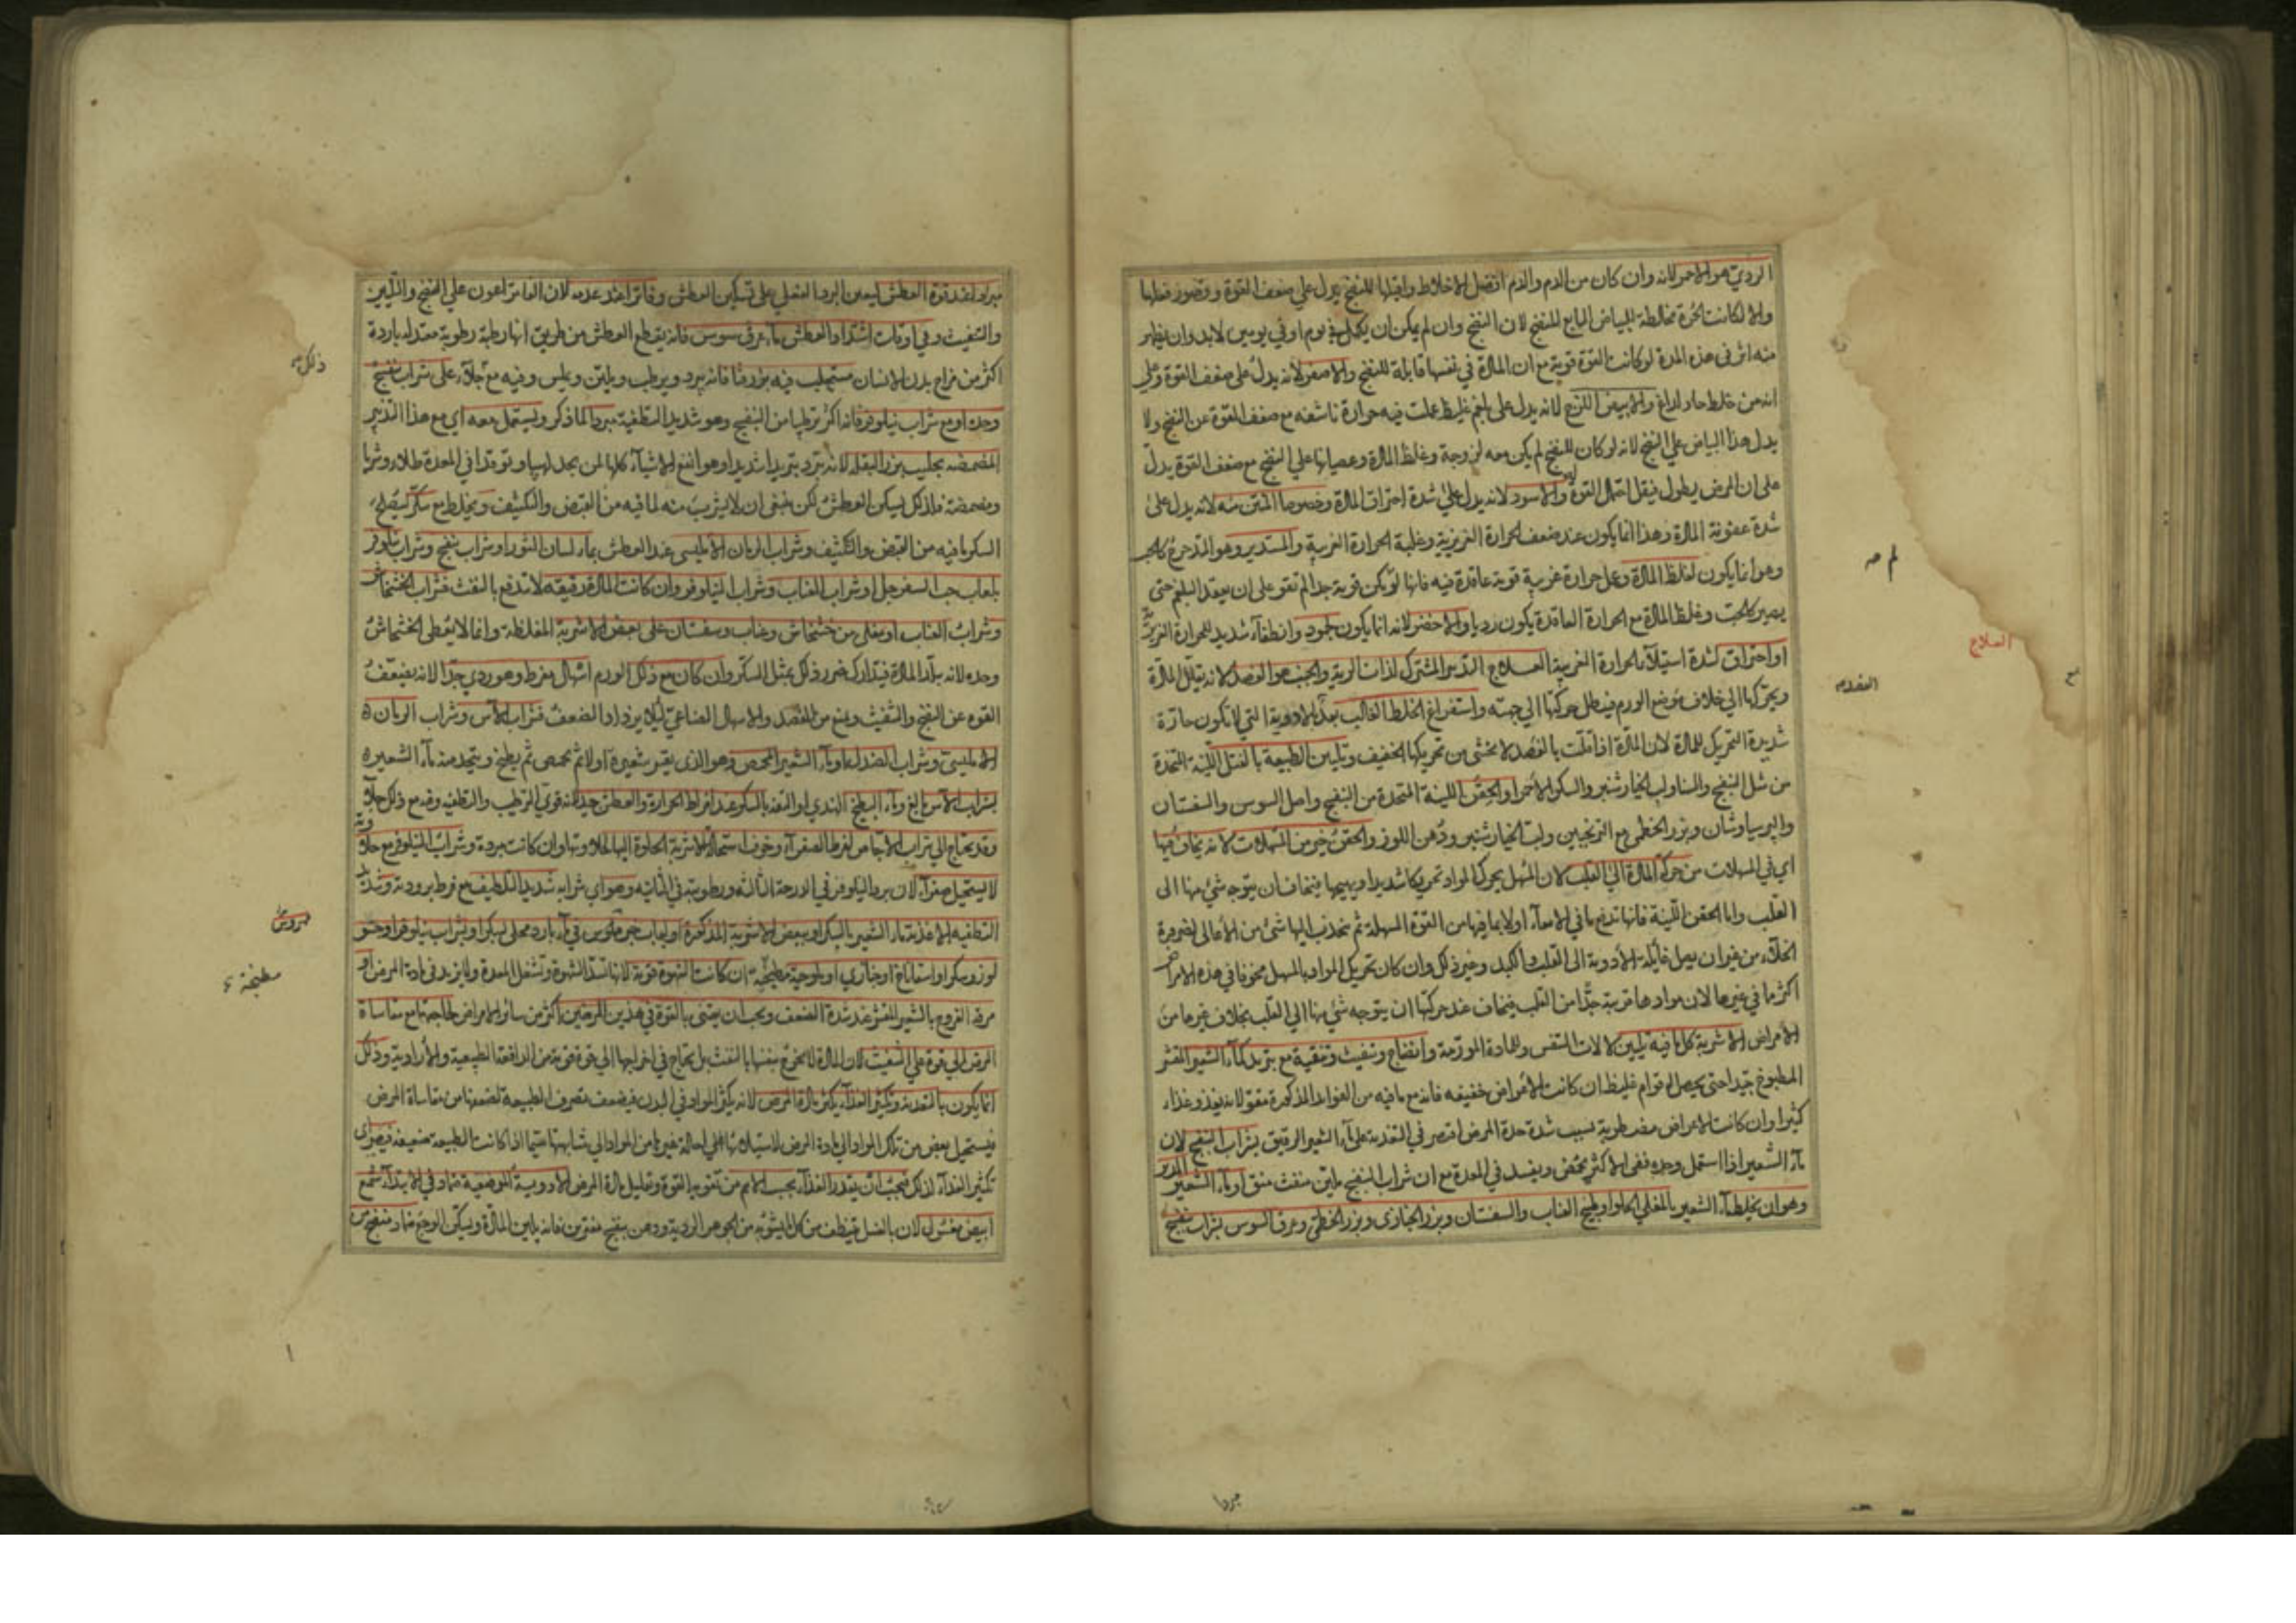 الردي هو الاحمر لانه وان كان من الدم والدم افضل الاخلاط واقبلها للنضج يدل علي ضعف القوة وقصور فعلها
والا لكانت الحمرة مخالطة للبياض التابع للنضج لان النضج وان لم يمكن ان يكمل في يوم او في يومين لابد وان يظهر
منه اثر في هذه المدة لو كانت القوة قوية مع ان المادة في نفسها قابلة للنضج والاصفر لانه يدل على ضعف القوة وعلى
انه من خلط حاد لداغ والابيض اللزج لانه يدل على بلغم غليظ عملت فيه حرارة ناشفه مع ضعف القوة عن النضج ولا
يدل هذا البياض علي النضج لانه لو كان للنضج لم يكن معه لزوجة وغلظ المادة وعصيانها علي النضج مع ضعف القوة يدل
على ان المرض يطول فيقل احتمال القوة له والاسود لانه يدل علي شدة احتراق المادة وخصوصا المنتن منه لانه يدل على
شدة عفونة المادة وهذا انما يكون عند ضعف الحرارة الغريزية وغلبة الحرارة الغريبة والمستدير وهو المتدحرج كالحب
وهو انما يكون لغلظ المادة وعمل حرارة غريبة قوية عاقدة فيه فانها لو لم تكن قوية جدا لم تقو على ان يعقد البلغم حتى
يصير كالحب وغلظ المادة مع الحرارة العاقدة يكون رديا والاخضر لانه انما يكون لجمود وانطفاء شديد للحرارة الغريزية
او احتراق لشدة استيلاء الحرارة الغريبة العلاج التدبير المشترك لذات الرية والجنب هو الفصد لانه يقلل المادة
ويحركها الي خلاف موضع الورم فيبطل حركتها الي جهته واستفراغ الخلط الغالب بعده بالادوية التي لا تكون حارة
شديدة التحريك للمادة لان المادة اذا قلت بالفصد لا يخشى من تحريكها الخفيف وتليين الطبيعة بالفتل اللينة المتخذة
من مثل البنفسج والسنا ولب الخيارشنبر والسكر الاحمر او الحقن اللينة المتخذة من البنفسج واصل السوس والسفستان
والبرسياوشان وبزر الخطمي مع الترنجبين ولب الخيارشنبر ودهن اللوز والحقن خير من المسهلات لانه يخاف فيها
اي في المسهلات من حركة المادة الي القلب لان المسهل يحرك المواد تحريكا شديدا ويهيجها فيخاف ان يتوجه شئ منها الى
القلب واما الحقن اللينة فانها تدفع ما في الامعاء اولا بما فيها من القوة المسهلة ثم ينجذب اليها شئ من الاعالى لضرورة
الخلاء من غير ان يصل غائلة الادوية الى القلب والكبد وغير ذلك وان كان تحريك المواد بالمسهل مخوفا في هذه الامراض
اكثر ما في غيرها لان موادها قريبة جدا من القلب فيخاف عند حركتها ان يتوجه شئ منها الي القلب بخلاف غيرها من
الامراض الاشربة كل ما فيه تليين لالات التنفس وللمادة المورمة وانضاج وتنفيث وتنقية مع تبريد كماء الشعير المقشر
المطبوخ جيدا حتى يحصل له قوام غليظ ان كانت الاعراض خفيفه فانه مع ما فيه من الفوائد المذكورة مقو لانه يغذو غذاء
كثيرا وان كانت الاعراض مضطربة بسبب شدة حدة المرض اقتصر في التغذية على ماء الشعير الرقيق بشراب البنفسج لان
ماء الشعير اذا استعمل وحده ففي الاكثر يحمض ويفسد في المعدة مع ان شراب البنفسج ملين منفث منق او ماء الشعير المدبر
وهو ان يخلط ماء الشعير بالمغلي الحلو او طبيخ العناب والسفستان وبزر الخبازى وبزر الخطمي وعرق السوس بشراب بنفسج
لم صه
العلاج
المقدمه
مبردا عند قوة العطش ليعين البرد الفعلي على تسكين العطش وفاترا عند عدمه لان الفاتر اعون علي النضج والتليين
والتنفيث وفي اوقات اشتداد العطش ماء عرق سوس فانه يقطع العطش من طريق انها رطبة رطوبة معتدله باردة
اكثر من مزاج بدن الانسان مستحلب فيه بزر قثا فانه يبرد ويرطب ويلين ويملس وفيه مع جلاء على شراب بنفسج
وحده او مع شراب نيلوفر فانه اكثر ترطيبا من البنفسج وهو شديد التطفية مبردا لما ذكر ويستعمل معه اي مع هذا التدبير
المضمضة بحليب بزر البقله لانه يبرد تبريدا شديدا وهو انفع الاشياء كلها لمن يجد لهيبا وتوقدا في المعدة طلاء وشربا
ومضمضة فلذلك يسكن العطش لكن ينبغي ان لا يشرب منه لما فيه من القبض والتكثيف ويخلط مع سكر ليصلح
السكر ما فيه من القبض والتكثيف وشراب الرمان الامليسي عند العطش بماء لسان الثور او شراب بنفسج وشراب نيلوفر
بلعاب حب السفرجل او شراب العناب وشراب النيلوفر وان كانت المادة رقيقه لا تندفع بالنفث فشراب الخشخاش
وشراب العناب او مغلى من خشخاش وعناب وسفستان على بعض الاشربة المغلظة وانما لا يعطى الخشخاش
وحده لانه يبلد المادة فيتدارك ضرر ذلك بمثل السكر وان كان مع ذلك الورم اسهال مفرط وهو ردي جدا لانه يضعف
القوه عن النضج والتنفيث ويمنع من الفصد والاسهال الصناعي لئلا يزداد الضعف فشراب الاس وشراب الرمان
الامليسى وشراب الصندل بماء الشعير المحمص وهو الذي يقشر شعيره اولا ثم يحمص ثم يطبخ ويتخذ منه ماء الشعير
وقد يحتاج الي شراب الاجاص لفرط الصفراء وخوف استحالة الاشربة الحلوة اليها لحلاوتها وان كانت مبردة وشراب النيلوفر مع حلاوته
لا يستحيل صفراء لان برد النيلوفر في الدرجة الثالثه ورطوبته في الثانيه وهو اي شرابه شديد التلطيف مع فرط برودته وشديد
التطفيه الاغذية ماء الشعير بالسكر او ببعض الاشربة المذكورة او لباب خبز مغموس في ماء بارد محلى بسكر او بشراب نيلوفر او حسو
لوز وسكر او اسفاناخ او خبازي او ملوخية مطبخة ان كانت الشهوة قوية لانها تسد الشهوة وتشغل المعدة ولا يزيد في مادة المرض او
مرقة الفروج بالشعير المقشر عند شدة الضعف ويجب ان يعتنى بالقوة في هذين المرضين اكثر من سائر الامراض لحاجتها مع مقاساة
المرض الي قوة علي التنفيث لان المادة لا تخرج بنفسها بالنفث بل يحتاج في اخراجها الي قوة قوية من الدافعة الطبيعية والارادية وذلك
انما يكون بالتغذية وتكثير الغذاء يكثر مادة المرض لانه يكثر المواد في البدن فيضعف تصرف الطبيعة لضعفها من مقاساة المرض
فيستحيل بعض من تلك المواد الي مادة المرض لاستيلائها علي احالة غيرها من المواد الي مشابهتها سيما اذا كانت الطبيعة ضعيفة فيضر
تكثير الغذاء لذلك فيجب ان يقدر الغذاء بحسب الاهم من تقوية القوة وتقليل مادة المرض الادوية الموضعية ضماد في الابتداء شمع
ابيض مغسول لان بالغسل ينظف من كل ما يشوبه من الجوهر الردية ودهن بنفسج مفترين فانه يلين المادة ويسكن الوجع ضماد منضج
ذلك
مطبخة